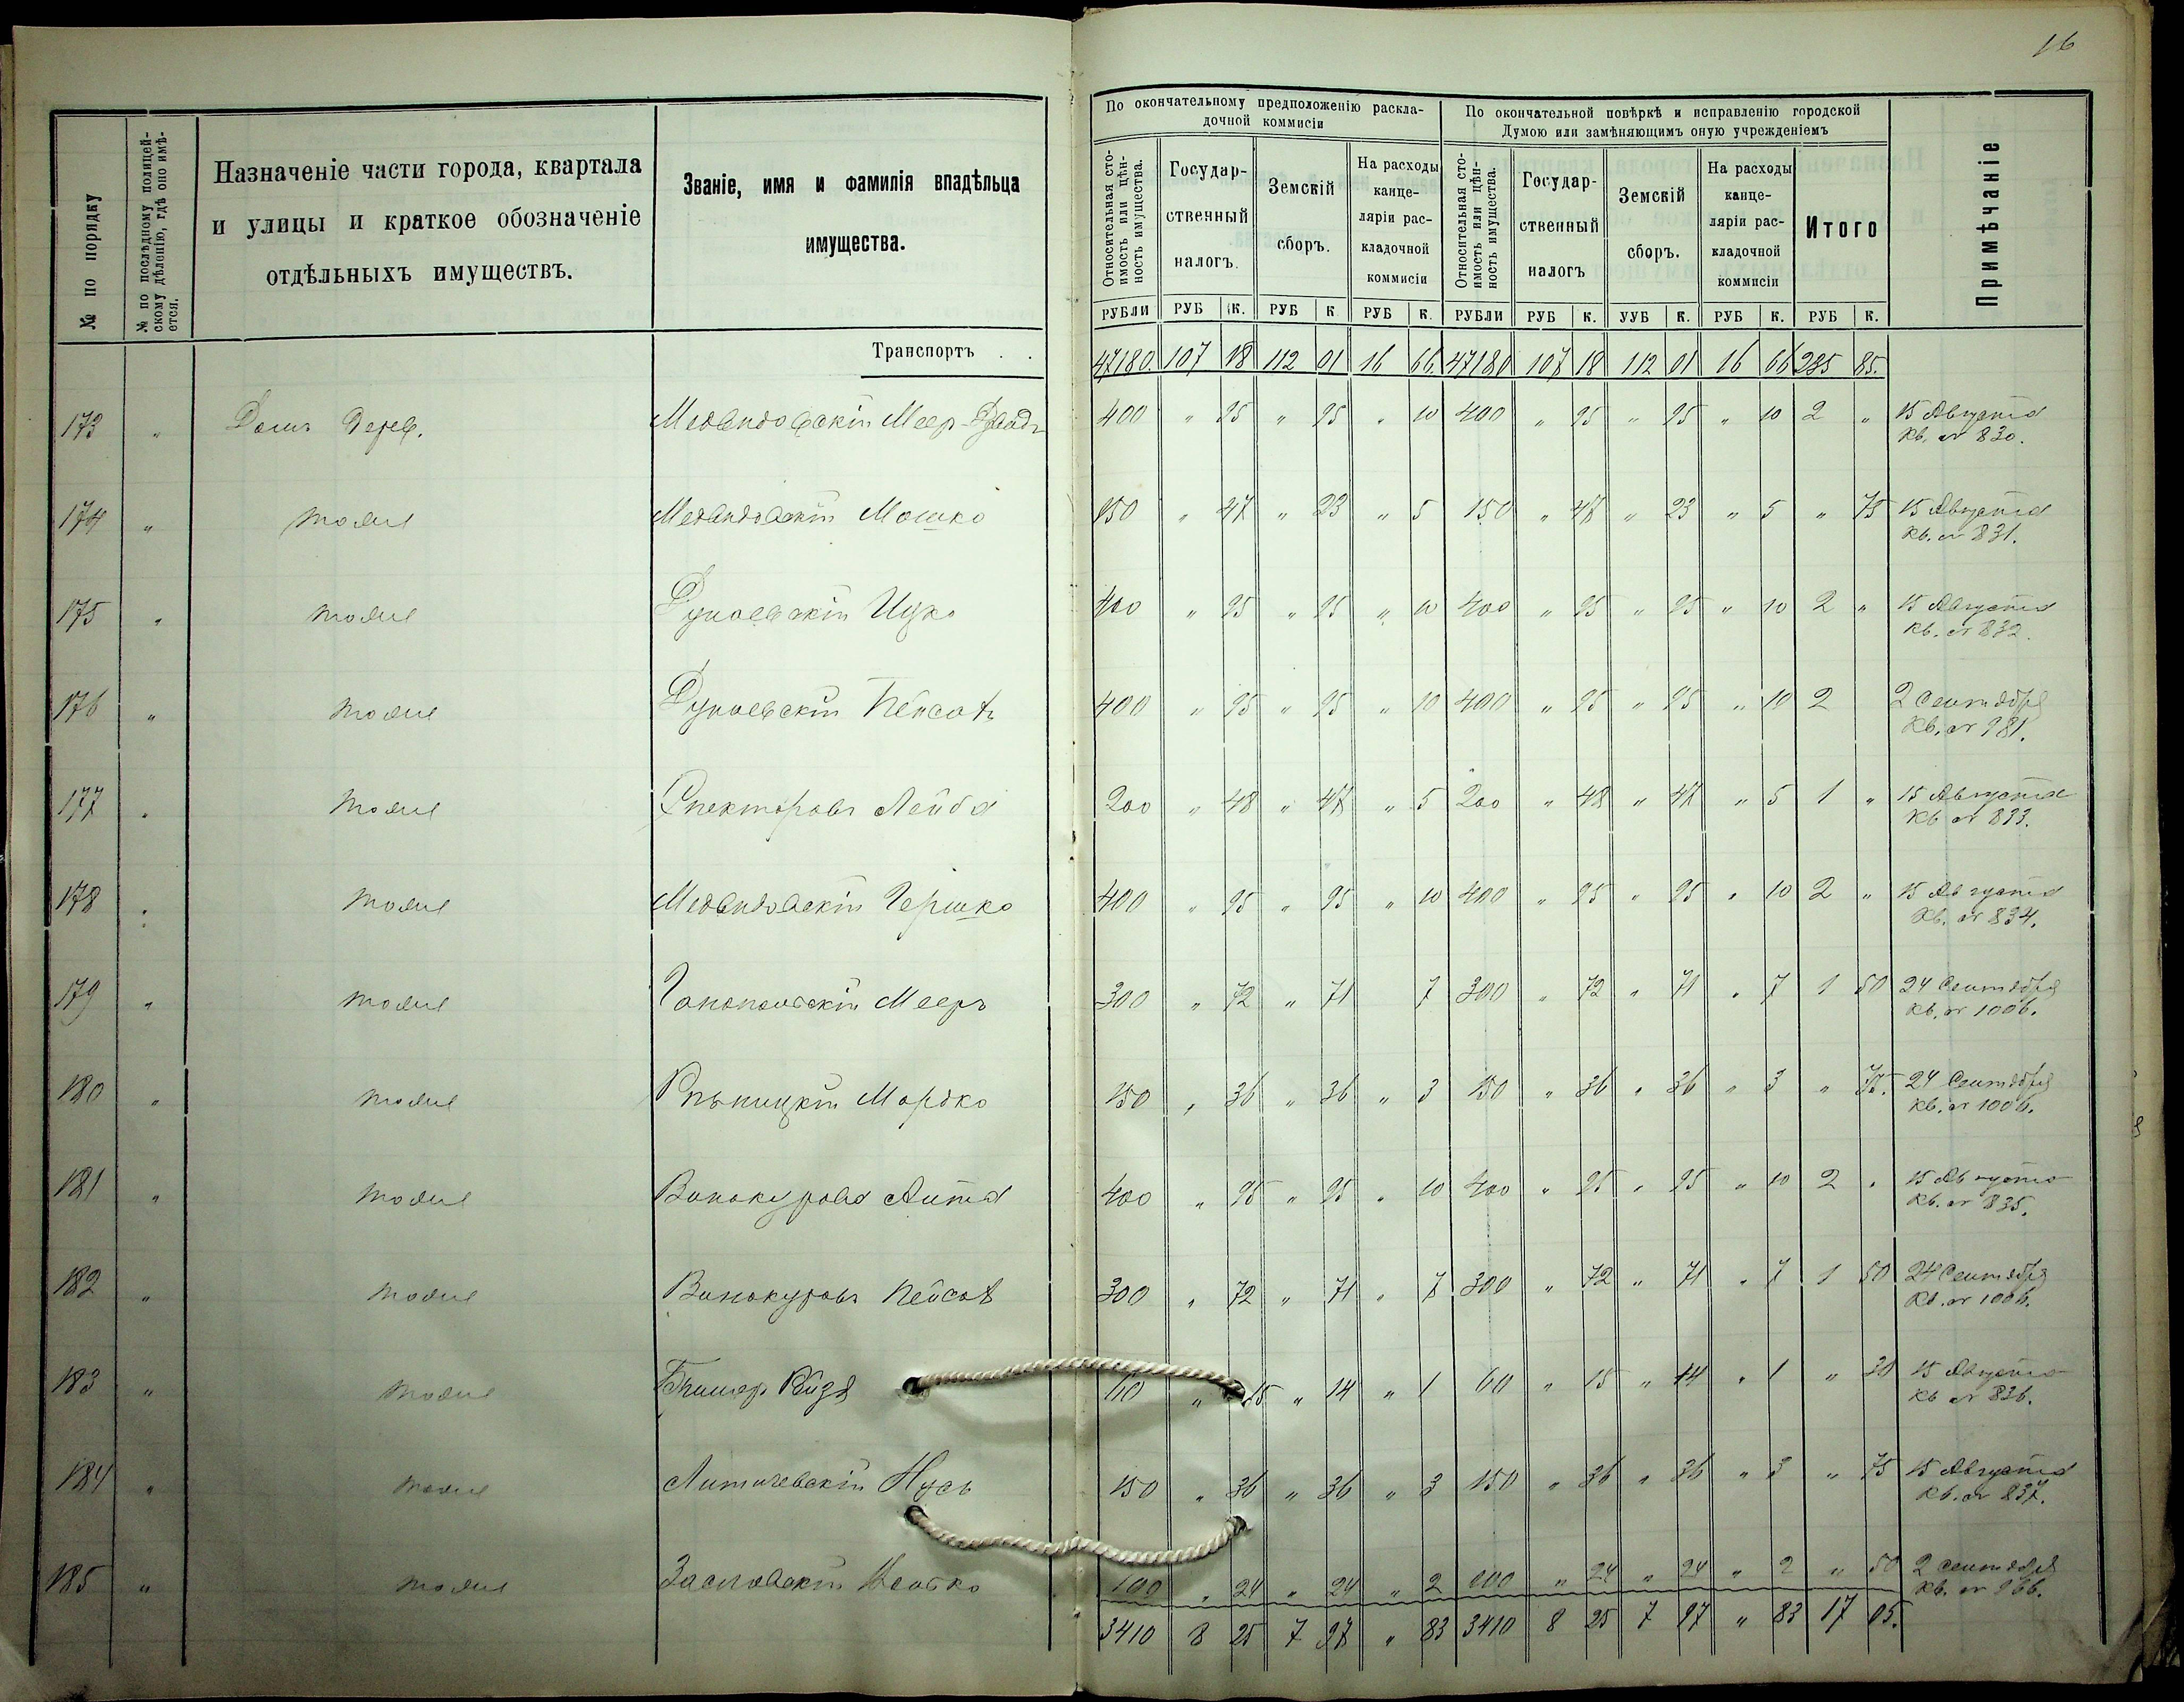 16
№ по порядку
№ по послѣдному полицей-
скому дѣленію, гдѣ оно имѣ-
ется.
Назначеніе части города, квартала
и улицы и краткое обозначеніе
отдѣльныхъ имуществъ.
Званіе, имя и фамилія владѣльца
имущества.
По окончательному предположенію раскла-
дочной коммисіи
Относительная сто-
имость или цѣн-
ность имущества.
Государ-
ственный
налогъ.
Земскій
сборъ.
На расходы
канце-
ляріи рас-
кладочной
коммисіи
По окончательной повѣркѣ и исправленію городской
Думою или замѣняющимъ оную учрежденіемъ
Относительная сто-
имость или цѣн-
ность имущества.
Государ-
ственный
налогъ
Земскій
сборъ.
На расходы
канце-
ляріи рас-
кладочной
коммисіи
Итого
Примѣчаніе
РУБЛИ РУБ К. РУБ К РУБ К. РУБЛИ РУБ К. УУБ К. РУБ К. РУБ К.
Транспортъ . . 47180. 107 18 112 01 16 66. 47180 107 18 112 01 16 66 285 85.
173 " Домъ Дерев. Медвидовскій Меер-Дувидъ 400 " 95 " 95 " 10 400 " 95 " 95 " 10 2 " 15 Августа
Кв. № 830.
174 " тоже Медвидовскій Мошко 150 " 47 " 23 " 5 150 " 47 " 23 " 5 " 75 15 Августа
Кв. № 831.
175 " тоже Дунаевскій Ицко 400 " 95 " 95 " 10 400 " 95 " 95 " 10 2 " 15 Августа
Кв. № 832.
176 " тоже Дунаевскій Пейсахъ 400 " 95 " 95 " 10 400 " 95 " 95 " 10 2 2 Сентября
Кв. № 981.
177 " тоже Спекторовъ Лейба 200 " 48 " 47 " 5 200 " 48 " 47 " 5 1 " 15 Августа
Кв № 833.
178 " тоже Медвидовскій Гершко 400 " 95 " 95 " 10 400 " 95 " 95 " 10 2 " 15 Августа
Кв. № 834.
179 " тоже Мееръ 300 " 72 " 71 7 300 " 72 " 71 " 7 1 50 24 Сентября
Кв. № 1006.
180 " тоже Рѣпицкій Мордко 150 " 36 " 36 " 3 150 " 36 " 36 " 3 " 75. 24 Сентября
Кв. № 1006.
181 " тоже Винокурова 400 " 95 " 95 " 10 400 " 95 " 95 " 10 2 " 15 Августа
Кв. № 835.
182 " тоже Винокуровъ Пейсах 300 " 72 " 71 " 7 300 " 72 " 71 " 7 1 50 24 Сентября
Кв. № 1006.
183 " тоже 60 " 15 " 14 " 1 60 " 15 " 14 " 1 " 30 15 Августа
Кв № 836.
184 " тоже Литичевскій Нусь 150 " 36 " 36 " 3 150 " 36 " 36 " 3 " 75 15 Августа
Кв. № 837.
185 " тоже Заславскій 100 " 24 " 24 " 2 100 " 24 " 24 " 2 " 50 2 Сентября
Кв. № 966.
3410 8 25 7 97 " 83 3410 8 25 7 97 " 83 17 05.